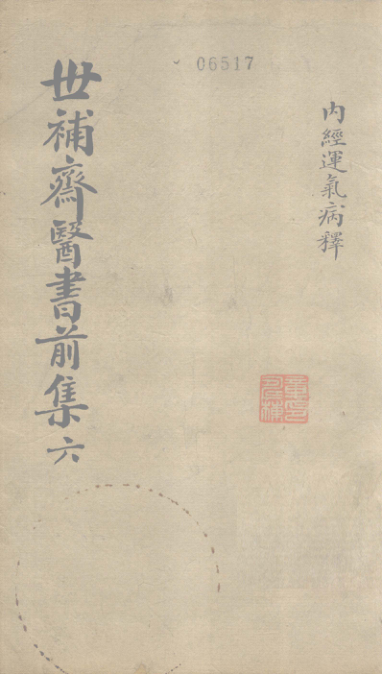 06517
內經運氣病釋
世補齋醫書前集六